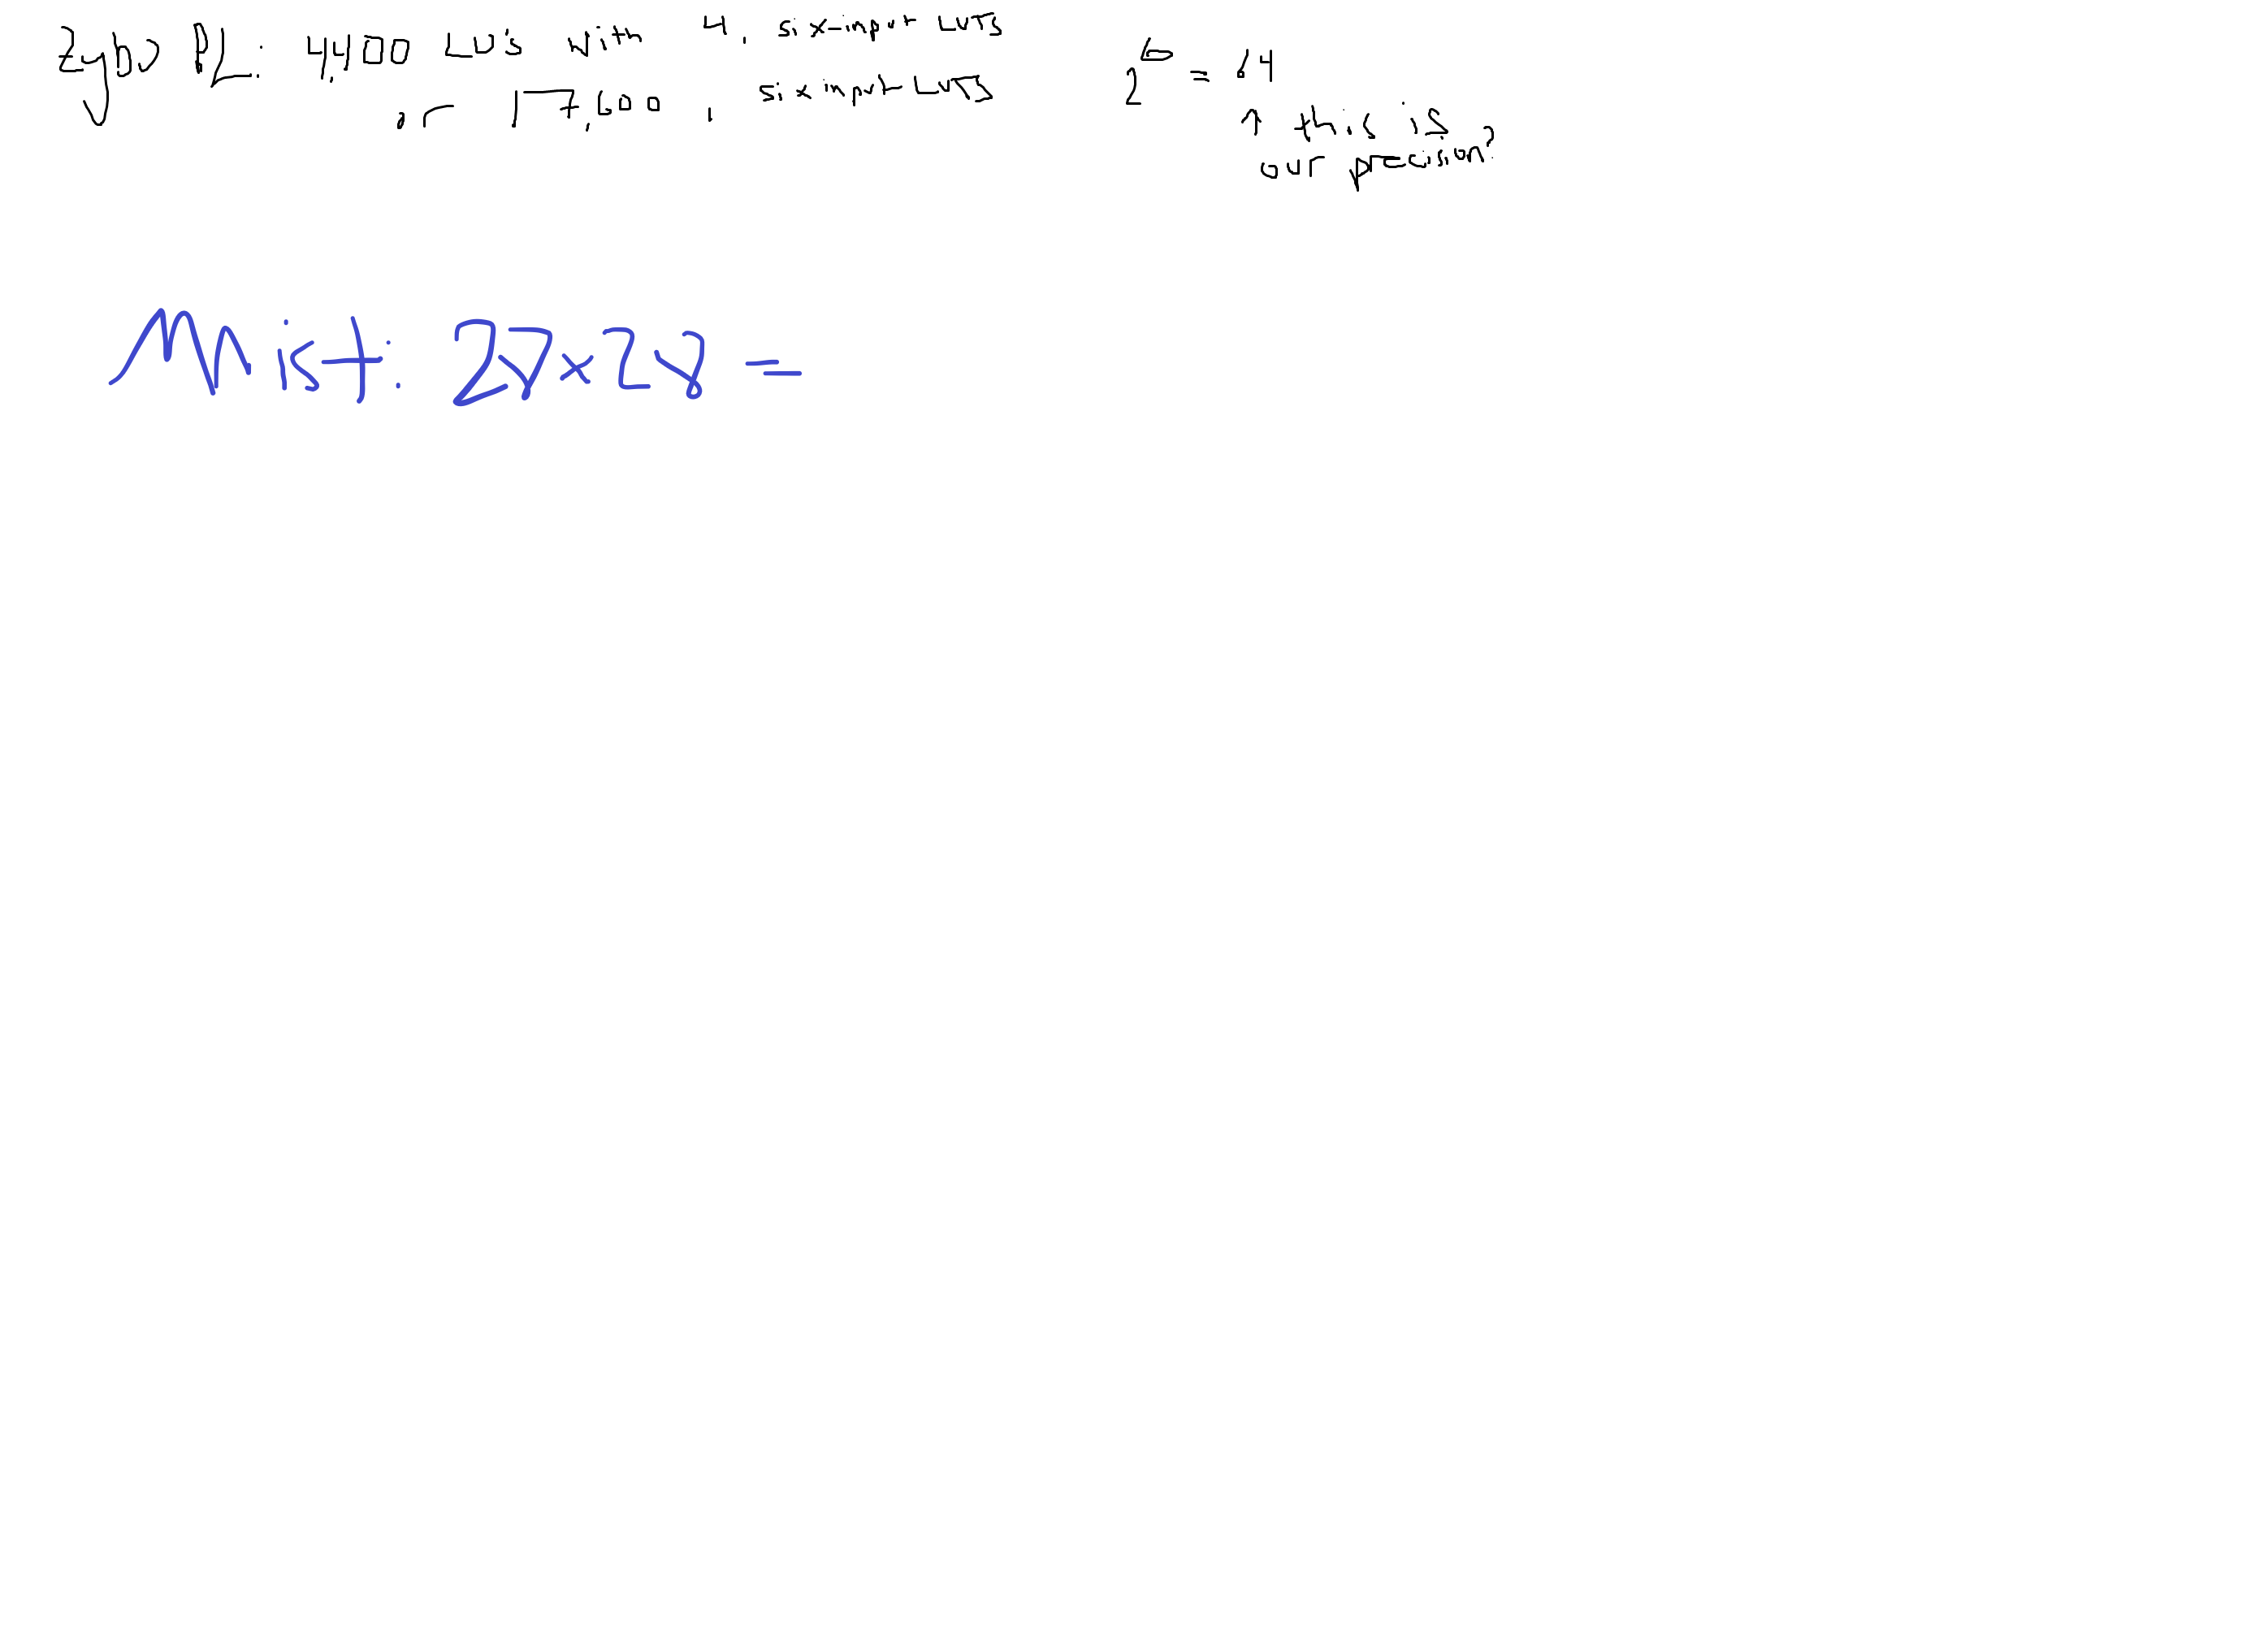 Zybo PL: 4,400 LUs with 4, six-input LUTs
or 17,600, six input LUTs
2^6 = 64
↑ this is
our precision?
Mnist: 27x28 =